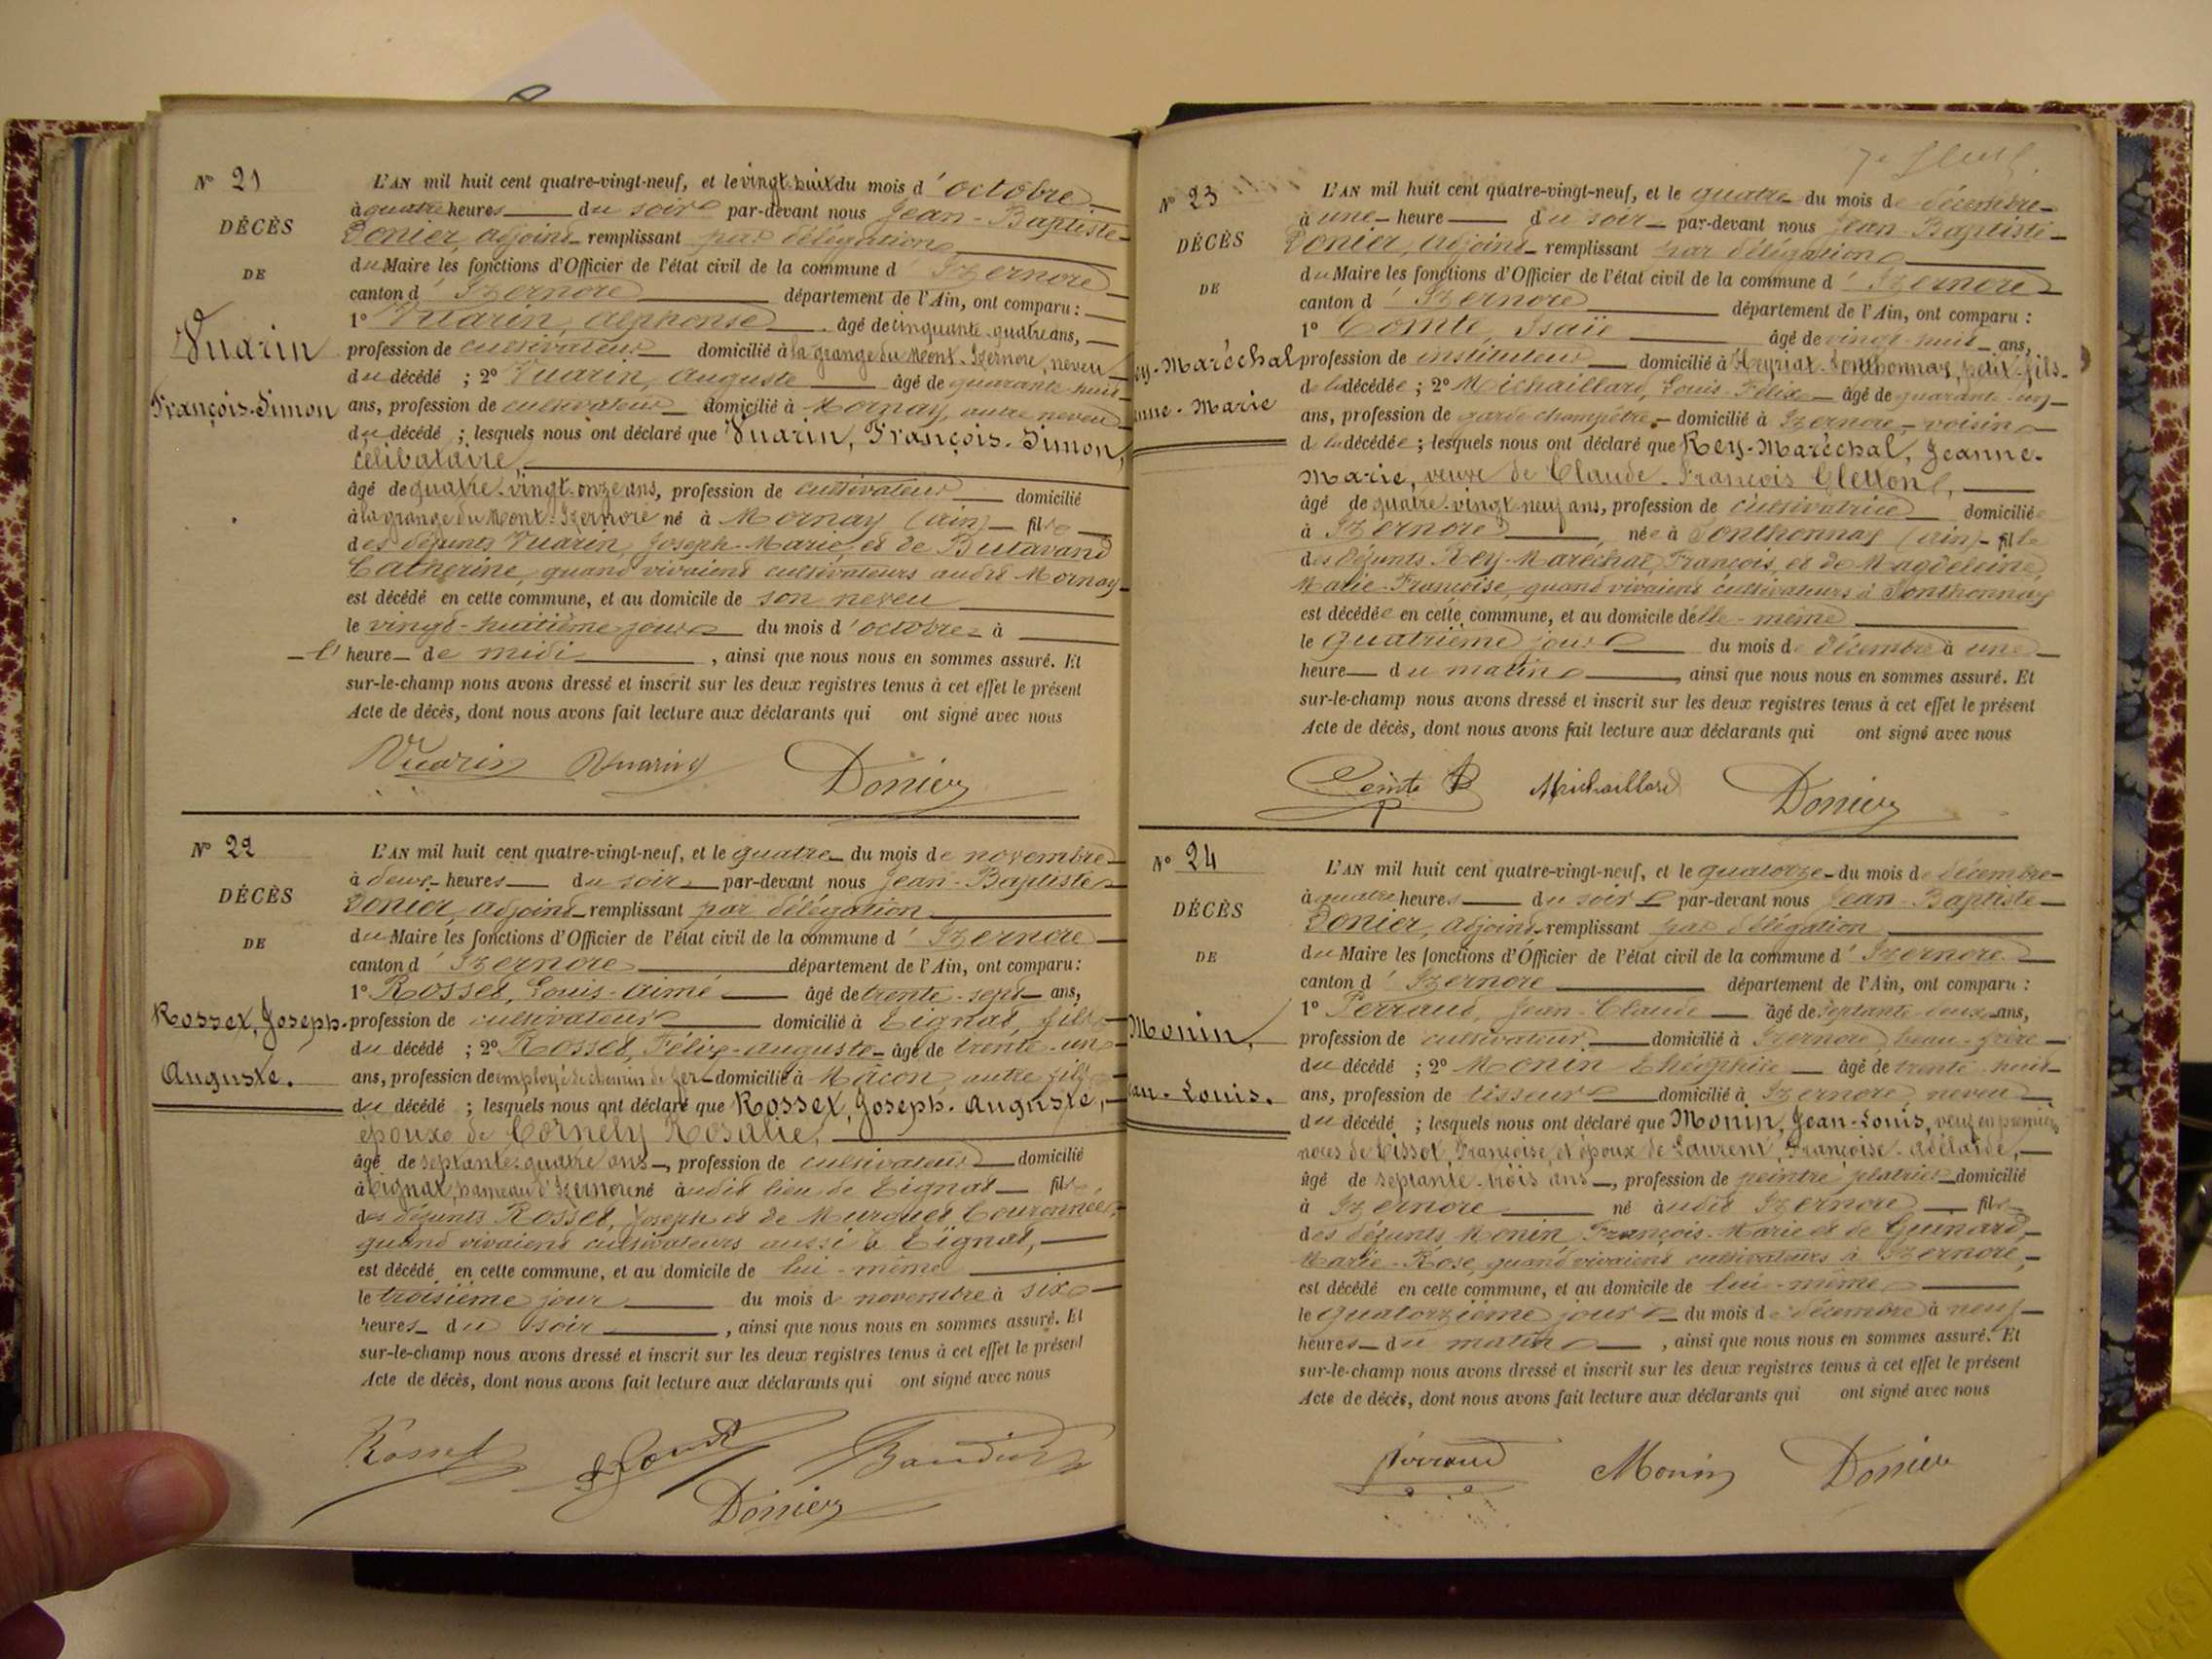 N° 21
DÉCÈS
DE
Vuarin
François-Simon
L'AN mil huit cent quatre-vingt-neuf, et le vingt-huit du mois d'octobre
à quatre heures du soir par-devant nous Jean-Baptiste
Donier, adjoint remplissant par délégation
du Maire les fonctions d'Officier de l'état civil de la commune d'Izernore
canton d'Izernore département de l'Ain, ont comparu :
1° Vuarin, Alphonse âgé de cinquante-quatre ans,
profession de cultivateur domicilié à la grange du Mont-Izernore, neveu
du décédé ; 2° Vuarin, Auguste âgé de quarante-huit
ans, profession de cultivateur domicilié à Mornay, autre neveu
du décédé ; lesquels nous ont déclaré que Vuarin, François-Simon,
célibataire,
âgé de quatre-vingt-onze ans, profession de cultivateur domicilié
à la grange du Mont-Izernore né à Mornay (Ain) fils
des défunts Vuarin, Joseph-Marie, et de Butavand
Catherine, quand vivaient cultivateurs audit Mornay
est décédé en cette commune, et au domicile de son neveu
le vingt-huitième jour du mois d'octobre à
l'heure de midi, ainsi que nous nous en sommes assuré. Et
sur-le-champ nous avons dressé et inscrit sur les deux registres tenus à cet effet le présent
Acte de décès, dont nous avons fait lecture aux déclarants qui ont signé avec nous
Vuarin Vuarin Donier
N° 22
DÉCÈS
DE
Rosset, Joseph-
Auguste.
L'AN mil huit cent quatre-vingt-neuf, et le quatre du mois de novembre
à deux heures du soir par-devant nous Jean-Baptiste
Donier, adjoint remplissant par délégation
du Maire les fonctions d'Officier de l'état civil de la commune d'Izernore
canton d'Izernore département de l'Ain, ont comparu :
1° Rosset, Louis-Aimé âgé de trente-sept ans,
profession de cultivateur domicilié à Tignat, fils
du décédé ; 2° Rosset, Félix-Auguste âgé de trente-un
ans, profession de employé de chemin de fer domicilié à Mâcon, autre fils
du décédé ; lesquels nous ont déclaré que Rosset, Joseph-Auguste,
époux de Cornély Rosalie,
âgé de septante-quatre ans, profession de cultivateur domicilié
à Tignat, hameau d'Izernore né audit lieu de Tignat fils
des défunts Rosset, Joseph et de Murguet Couronnée,
quand vivaient cultivateurs aussi à Tignat,
est décédé en cette commune, et au domicile de lui-même
le troisième jour du mois de novembre à six
heures du soir, ainsi que nous nous en sommes assuré. Et
sur-le-champ nous avons dressé et inscrit sur les deux registres tenus à cet effet le présent
Acte de décès, dont nous avons fait lecture aux déclarants qui ont signé avec nous
Rosset
Donier
N° 23
DÉCÈS
DE
ey-Maréchal
nne-Marie
L'AN mil huit cent quatre-vingt-neuf, et le quatre du mois de décembre
à une heure du soir par-devant nous Jean-Baptiste
Donier, adjoint remplissant par délégation
du Maire les fonctions d'Officier de l'état civil de la commune d'Izernore
canton d'Izernore département de l'Ain, ont comparu :
1° Comte, Isaïe âgé de vingt-huit ans,
profession de instituteur domicilié à Heyriat-Sonthonnax, petit-fils
de la décédée ; 2° Michaillard, Louis-Félix âgé de quarante-un
ans, profession de garde champêtre domicilié à Izernore, voisin
de la décédée ; lesquels nous ont déclaré que Rey-Maréchal, Jeanne-
Marie, veuve de Claude-François Cletton,
âgé de quatre-vingt-neuf ans, profession de cultivatrice domiciliée
à Izernore, née à Sonthonnax (Ain) fille
des défunts Rey-Maréchal, François, et de Magdeleine,
Marie-Françoise, quand vivaient cultivateurs à Sonthonnax
est décédée en cette commune, et au domicile d'elle-même
le quatrième jour du mois de décembre à une
heure du matin, ainsi que nous nous en sommes assuré. Et
sur-le-champ nous avons dressé et inscrit sur les deux registres tenus à cet effet le présent
Acte de décès, dont nous avons fait lecture aux déclarants qui ont signé avec nous
Comte Michaillard Donier
N° 24
DÉCÈS
DE
Monin,
ean-Louis.
L'AN mil huit cent quatre-vingt-neuf, et le quatorze du mois de décembre
à quatre heures du soir par-devant nous Jean-Baptiste
Donier, adjoint remplissant par délégation
du Maire les fonctions d'Officier de l'état civil de la commune d'Izernore
canton d'Izernore département de l'Ain, ont comparu :
1° Perraud, Jean-Claude âgé de septante-deux ans,
profession de cultivateur domicilié à Izernore, beau-frère
du décédé ; 2° Monin Théophile âgé de trente-huit
ans, profession de tisseur domicilié à Izernore neveu
du décédé ; lesquels nous ont déclaré que Monin, Jean-Louis, veuf en premières
noces de Tissot, Françoise, et époux de Laurent, Françoise-Adélaïde,
âgé de septante-trois ans, profession de peintre plâtrier domicilié
à Izernore né audit Izernore fils
des défunts Monin François-Marie et de Guinard,
Marie-Rose, quand vivaient cultivateurs à Izernore,
est décédé en cette commune, et au domicile de lui-même
le quatorzième jour du mois de décembre à neuf
heures du matin, ainsi que nous nous en sommes assuré. Et
sur-le-champ nous avons dressé et inscrit sur les deux registres tenus à cet effet le présent
Acte de décès, dont nous avons fait lecture aux déclarants qui ont signé avec nous
Perraud Monin Donier